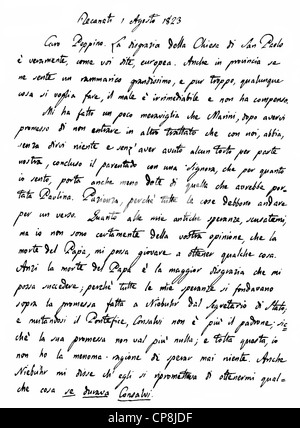 Recanati 1 Agosto 1823
Caro Peppino. La disgrazia della Chiesa di San Paolo
è veramente, come voi dite, europea. Anche in provincia se
ne sente un rammarico grandissimo, e pur troppo, qualunque
cosa si voglia fare, il male è irrimediabile e non ha compenso.
Mi ha fatto un poco meraviglia che Marini, dopo avervi
promesso di non entrare in altro trattato che con noi, abbia,
senza dirvi niente e senz'aver avuto alcun torto per parte
nostra, concluso il parentado con una Signora, che per quanto
io sento, porta anche meno dote di quella che avrebbe por-
tata Paolina. Pazienza, perchè tutte le cose debbono andare
per un verso. Quanto alle mie antiche speranze, scusatemi,
ma io non sono certamente della vostra opinione, che la
morte del Papa, mi possa giovare a ottener qualche cosa.
Anzi la morte del Papa è la maggior disgrazia che mi
possa succedere; perchè tutte le mie speranze si fondavano
sopra la promessa fatta a Niebuhr dal Segretario di Stato;
e mutandosi il Pontefice, Consalvi non è più il padrone; sic-
chè la sua promessa non val più nulla; e tolta questa, io
non ho la menoma ragione di sperar mai niente. Anche
Niebuhr mi disse ch'egli si riprometteva di ottenermi qual-
che cosa se durava Consalvi.
alamy
CP8JDF